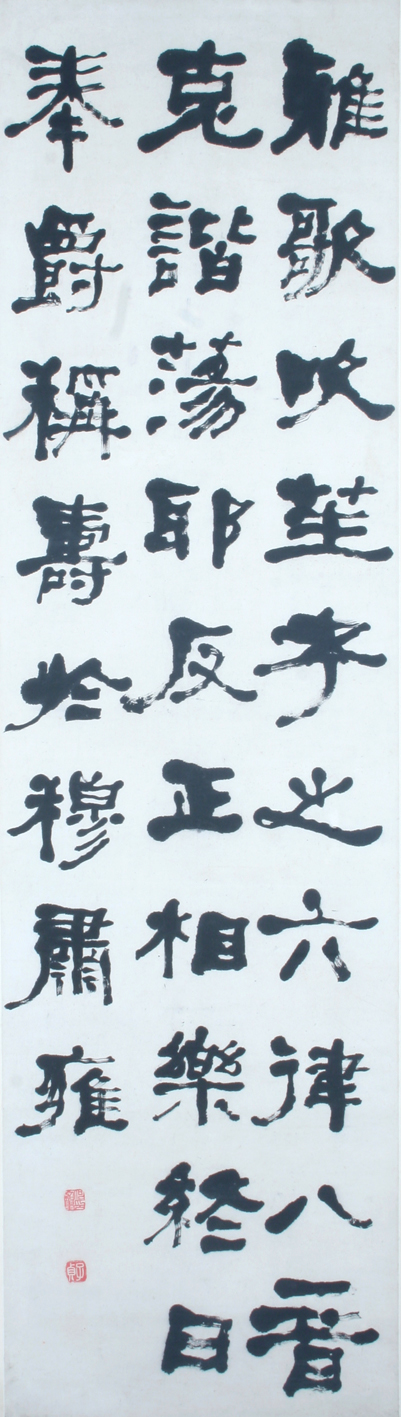 雅歌吹笙考之六律八音
克諧蕩耶反正相樂終日
奉爵稱壽於穆肅雍